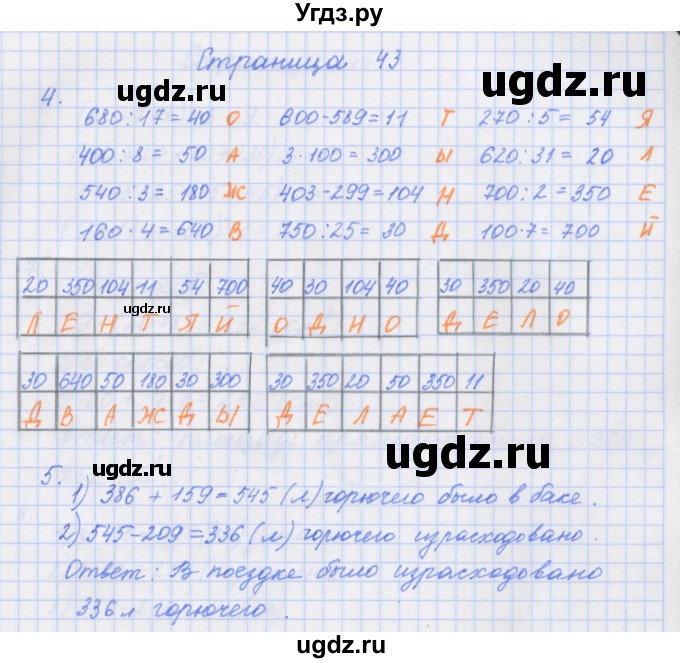 Угдз.ру
Страница 43
ugdz.ru ugdz.ru
4.
680:17=40 О 600-589=11 Т 270:5= 54 Я
400:8= 50 А 3·100=300 Ы 620:31= 20 Л
540:3= 180 Ж 403-299=104 Н 700:2=350 Е
160·4=640 В 750:25= 30 Д 100·7= 700 Й
ugdz.ru ugdz.ru
20 350 104 11 54 700 40 30 104 40 30 350 20 40
ugdz.ru
Л Е Н Т Я Й О Д Н О Д Е Л О
30 640 50 180 30 300 30 350 20 50 350 11
Д В А Ж Д Ы Д Е Л А Е Т
ugdz.ru ugdz.ru
5.
1) 386 + 159=545 (л) горючего было в баке.
2) 545-209=336 (л) горючего израсходовано.
Ответ: В поездке было израсходовано
336 л горючего.
ugdz.ru